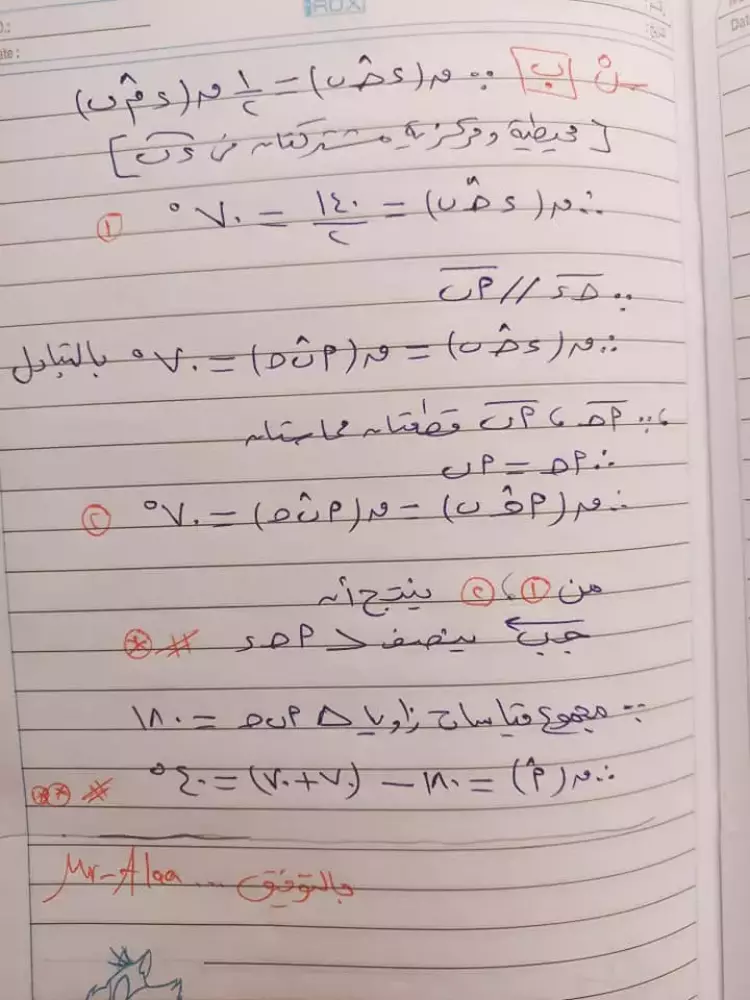 ROX
Date:
س٥ ب ∵ ق(د حـ̂ ب) = ١/٢ ق(د م̂ ب)
[محيطية ومركزية مشتركتان في د ب]
∴ ق(د حـ̂ ب) = ١٤٠/٢ = ٧٠° ①
∵ حـ د // أ ب
∴ ق(د حـ̂ ب) = ق(أ ب̂ حـ) = ٧٠° بالتبادل
، ∵ أ حـ ، أ ب قطعتان مماستان
∴ أ حـ = أ ب
∴ ق(أ حـ̂ ب) = ق(أ ب̂ حـ) = ٧٠° ②
من ① ، ② ينتج أنه
جـ ب ينصف > أ حـ د # *
∵ مجموع قياسات زوايا △ أ ب حـ = ١٨٠
∴ ق(أ̂) = ١٨٠ − (٧٠+٧٠) = ٤٠° # **
بالتوفيق ... Mr-Alaa